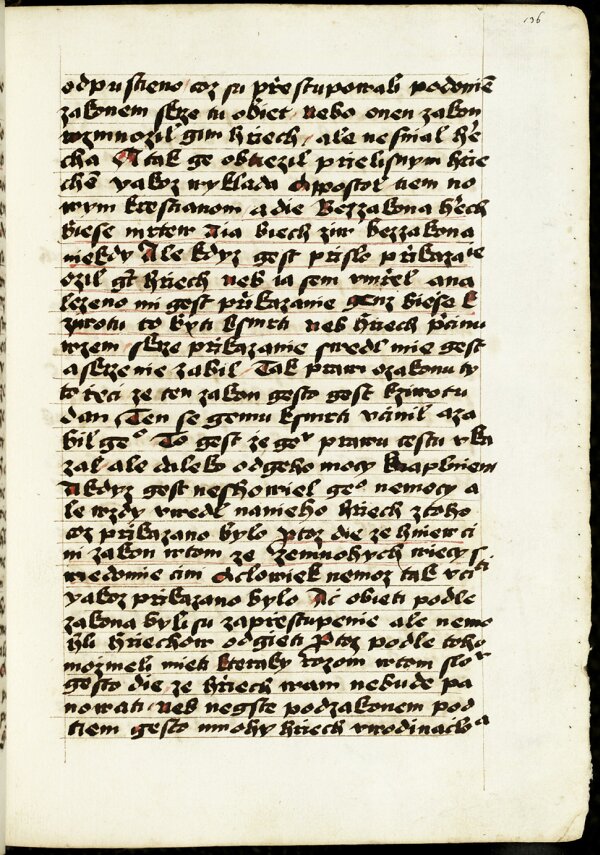 196
odpustieno coz su přestupowali podoniē
zakonem skrze tu obiet nebo onen zakon
rozmnozil gim hřiech ale nesňial hře
cha A tak ge obtiezil přielisnym hřie
chē yakoz wyklada Appostol tiem no
wym krestianom a die Bezzakona hřech
biese mrtew A ia biech ziw bezzakona
niekdy Ale kdyz gest přislo přikazaie
ozil gt hřiech neb ia sem vmřel a na
lezeno mi gest přikazanie genz biese k
zywotu to byti ksmrti neb hřiech přcinu
wzem skrze přikazanie swedl mie gest
a skrze nie zabil Tak prawi ozakonu ty
to řeci ze ten zakon gesto gest kziwotu
dan Ten se gemu ksmrti vcinil a za
bil geo To gest ze gor prawu cestu vka
zal ale daleko odgeho mocy knaplniem
A kdyz gest neshowiel geo nemocy a
le wzdy vwedl nanieho hřiech ztoho
coz přikazano bylo Ptoz die ze hniew ci
ni zakon wtom ze Zemnohych wiecy s
wiedomie cini Aclowiek nemoz tak vciti
yakoz přikazano bylo Ač obieti podle
zakona byli su zapřestupenie ale nemo
hli hřiechow odgieti Ptoz podle toho
mozmeli mieti kteraky rozom wtom slor
gesto die ze hřiech wam nebude pa
nowati neb negste podzakonem pod
tiem gesto mnohy hřiech vwodinacloa